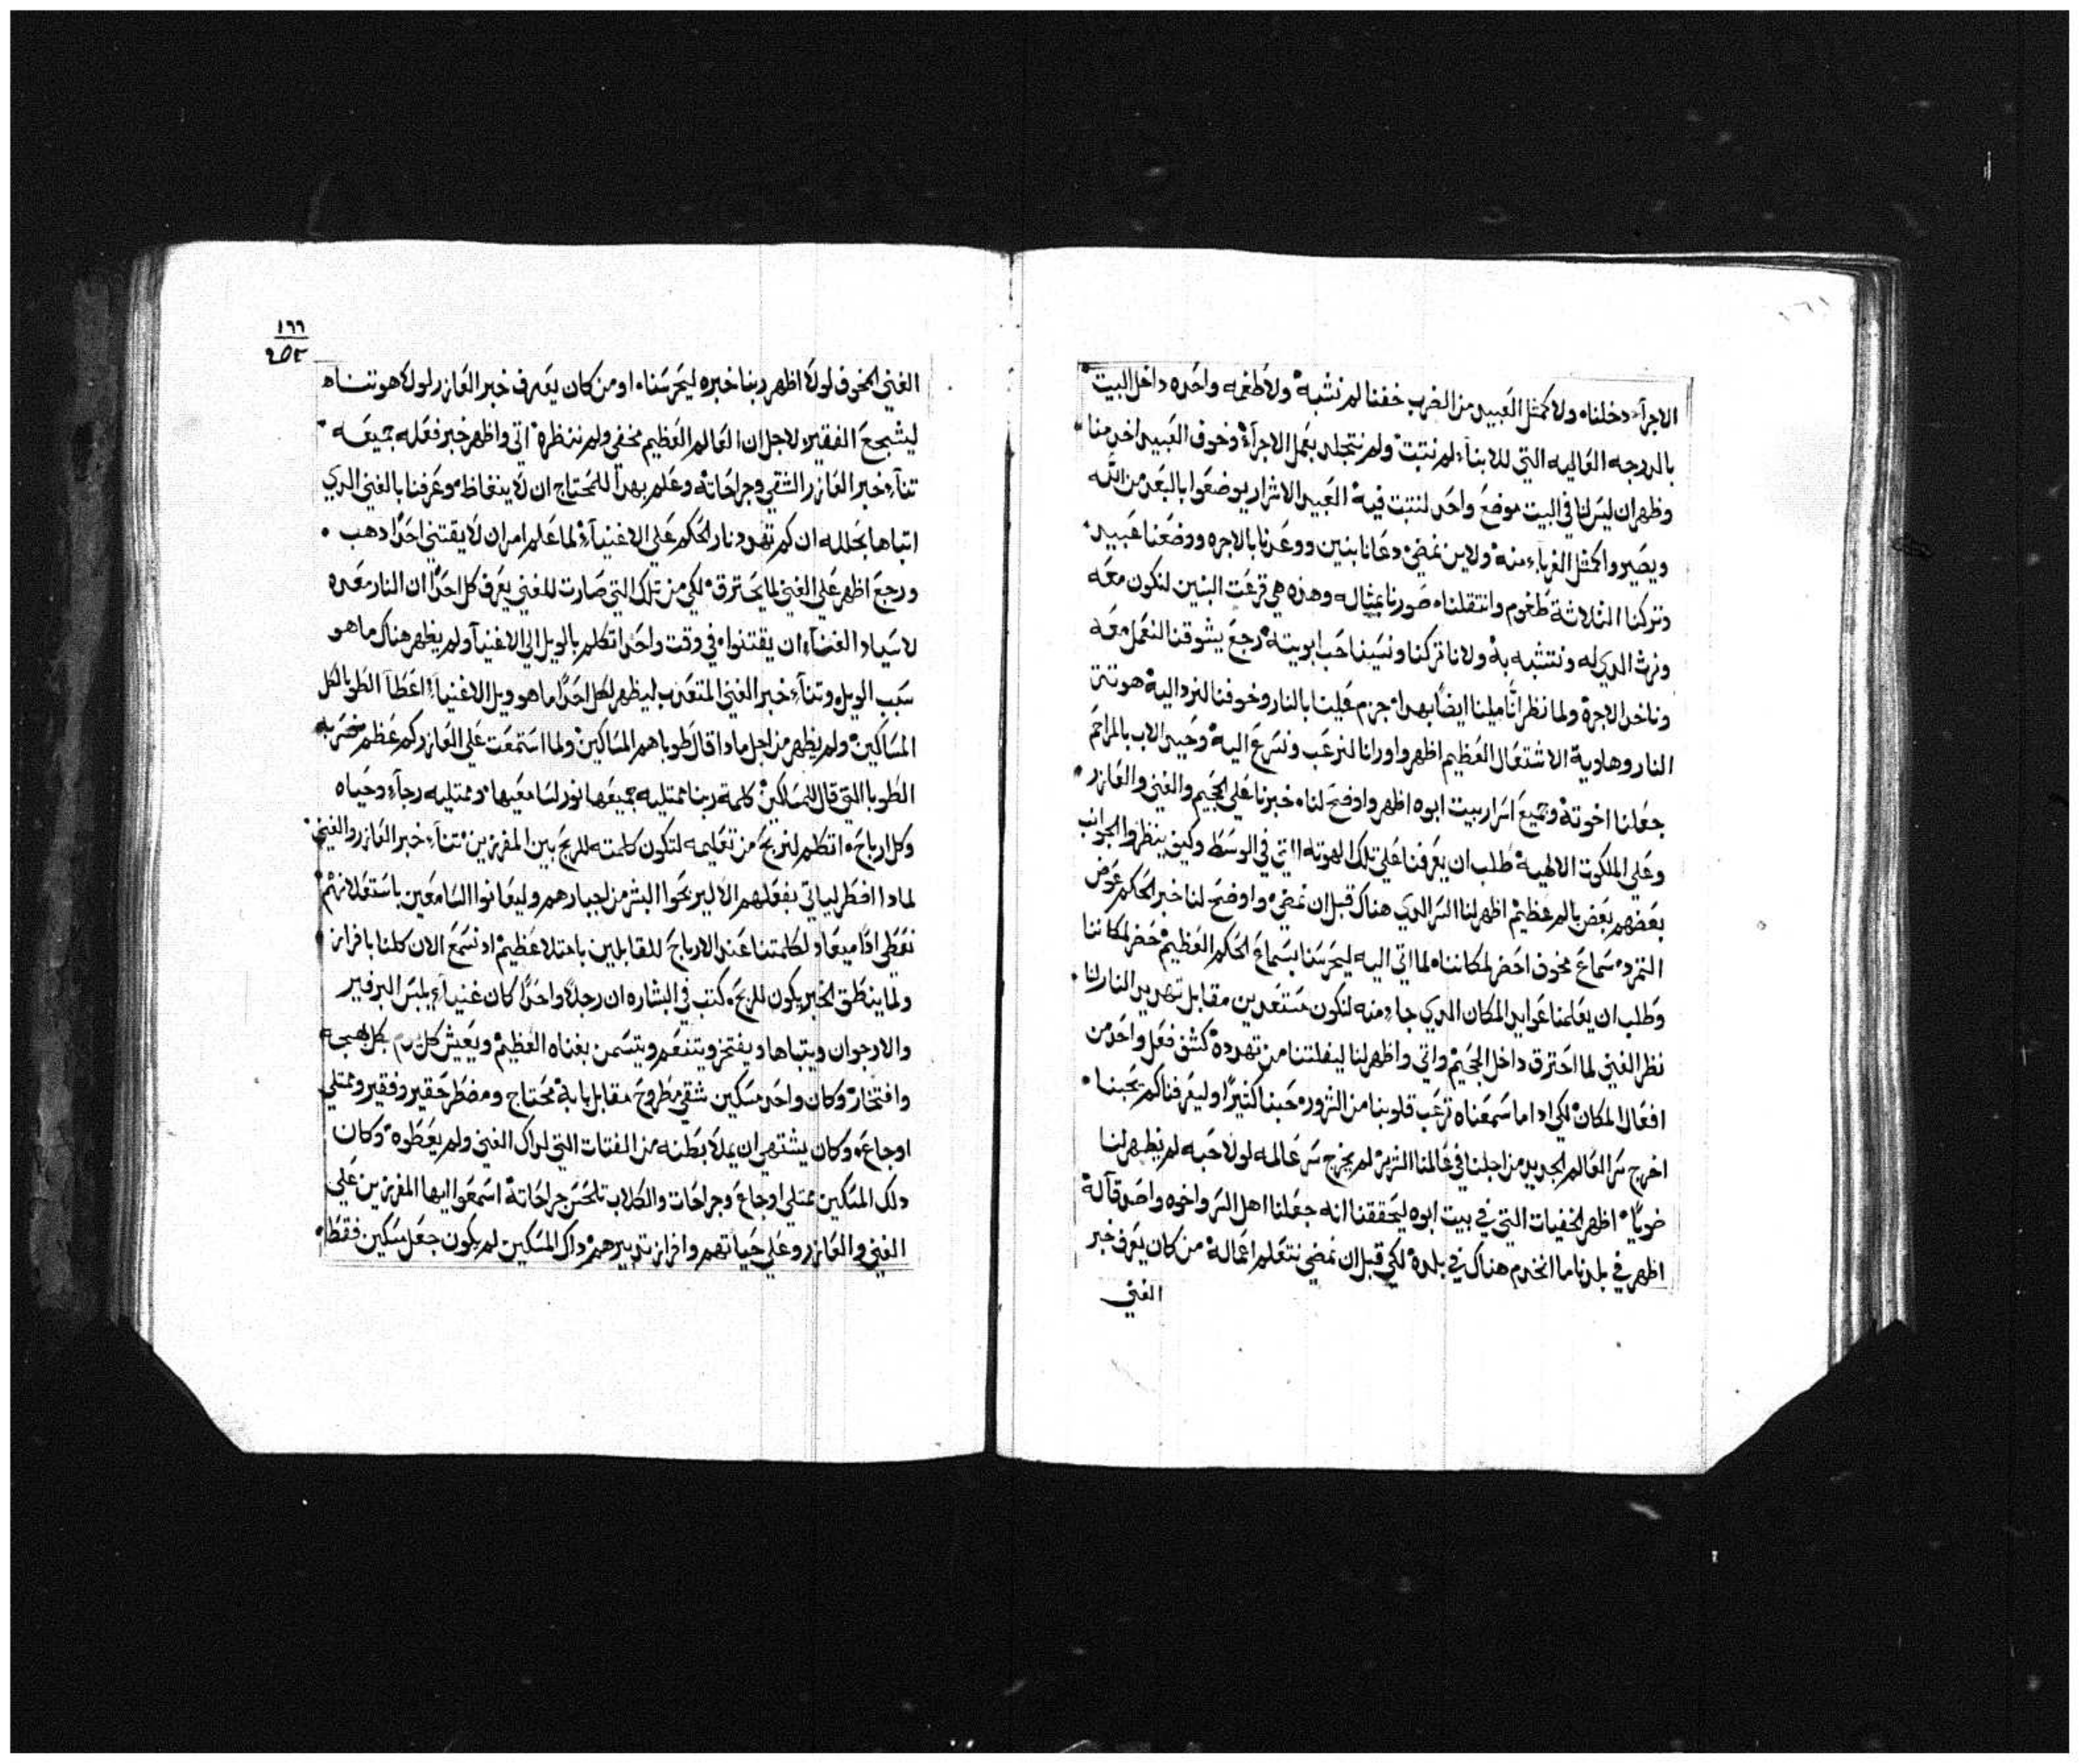 الاجرآء دخلناه ولا كمثل العبيد من الضرب خفنا لم نشبه ولا طغمه واحده داخل البيت
بالدرجه العاليه التي للابنآء لم نتبت ولم نتجلد بعمل الاجرآء وخوف العبيد اخد منا
وظهر ان ليس لنا في البيت موضع واحد لنتبت فيه العبيد الاشرار يوضعوا بالبعد من الله
ويصيروا كمثل الغربآء منه ولاين نمضي دعانا بنين ووعدنا بالاجره ووضعنا عبيد
وتركنا الثلاثة طغوم وانتقلناه صورنا بمثاله وهذه هي قرعت البنين لنكون معه
ونرث الدي له ونتشبه به ولانا تركنا ونسينا حب ابويته رجع يشوقنا لنعمل معه
وناخد الاجرة ولما نظر اننا ميلنا ايضاً بهدا جزم علينا بالنار وخوفنا لنرد اليه هوتة
النار وهاوية الاشتعال العظيم اظهر واورانا لنرعب ونسرع اليه وحيد الاب بالمراحم
جعلنا اخوته وجميع اسرار بيت ابوه اظهر واوضح لناه خبرنا على الجحيم والغني والعازر
وعلى الملكوت الالهية طلب ان يعرفنا على تلك الهوته التي في الوسط وكيف ينظروا الجوانب
بعضهم بعض بالم عظيم اظهر لنا السر الدي هناك قبل ان نمضي واوضح لنا خبر الحكم عوض
التمرد سماع مخوف احضر لمكانناه لما اتى اليه ليحرسنا بسماع الحكم العظيم حضر لمكاننا
وطلب ان يعلمنا عوايد المكان الدي جاء منه لنكون مستعدين مقابل تهديد النار لنا
نظر الغني لما احترق داخل الجحيم واتي واظهر لنا ليفلتنا من تهدده كشف فعل واحد من
افعال المكان لكي ادا ما سمعناه ترعب قلوبنا من الشروره حبنا كثيراً وليعرفنا كم يحبنا
اخرج سر العالم الجديد من اجلنا في عالمنا الشرير لم يخرج سر عالمه لولا حبه لم يظهر لنا
خوياً اظهر الخفيات التي في بيت ابوه ليحققنا انه جعلنا اهل السر واخوه واصدقآ له
اظهر في بلدنا ما انخدم هناك في بلده لكي قبل ان نمضي نتعلم اعماله من كان يعرف خبر
الغني
١٦٦
٢٥٢
الغني المخوف لولا اظهر ربنا خبره ليحرسناه او من كان يعرف خبر العازر لولا هو تناه
ليشجع الفقير ولاجل ان العالم العظيم مخفي ولم ننظره اتي واظهر خبر فعله جميعه
تنآء خبر العازر الشقي وجراحاته وعلم بهدا للمحتاج ان لا ينغاظ وعرفنا بالغني الدي
اتباها بحلله ان كم تهدد نار الحكم على الاغنيآء لما علم امر ان لا يقتني احداً دهب
ورجع اظهر على الغني لما يحترق لكي من تلك التي صارت للغني يعرف كل احداً ان النار معده
لاسياد الغنآء ان يقتنواه في وقت واحد اتكلم بالويل الي الاغنيآ ولم يظهر هناك ما هو
سبب الويل وتنآء خبر الغني المتعدب ليظهر لكل احداً ما هو ويل الاغنيآء اعطآ الطوبا لكل
المساكين ولم يظهر من اجل مادا قال طوباهم المساكين ولما استمعت على العازر كم عظم
الطوبا التي قال للمساكين كلمة ربنا ممتليه جميعها نور لسامعيها وممتليه رجآء وحياه
وكل ارباح اتكلم لنربح من تعليمه لتكون كلمته للربح بين المفرزين تنآء خبر العازر والغني
لمادا افطر لياتي بفعلهم الا ليربحوا البشر من اجبارهم وليعانوا السامعين باستعلانهم
نعطي ادا ميعاد لكلمتنا عند الارباح للقابلين بامتلا عظيم اد نسمع الان كلنا بافراز
ولما ينطق الخبر يكون للربح كتب في البشاره ان رجلاً واحداً كان غنياً يلبس البرفير
والارجوان ويتباها ويفتخر ويتنعم ويتسمن بغناه العظيم ويعيش كل يوم بكل بهجه
وافتخار وكان واحد مسكين شقي مطروح مقابل بابه محتاج ومضطر حقير وفقير وممتلي
اوجاع وكان يشتهي ان يملا بطنه من الفتات التي لداك الغني ولم يعطوه وكان
دلك المسكين ممتلي اوجاع وجراحات والكلاب تلحس جراحاته اسمعوا ايها المفرزين على
الغني والعازر وعلى حياتهم وافراز تدبيرهم داك المسكين لم يكون جعل مسكين فقط